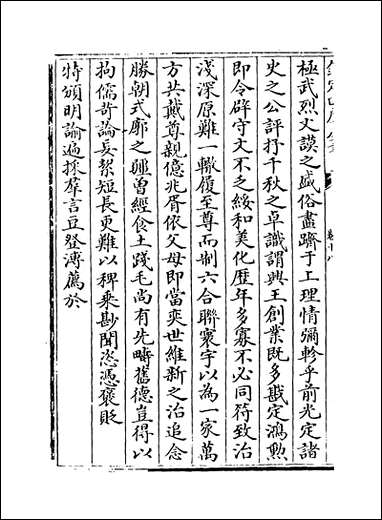 極武烈文謨之盛俗盡躋于上理情彌軫乎前光定諸
史之公評抒千秋之卓識謂興王創業既多戡定鴻勲
即令辟守文不乏綏和美化歴年多寡不必同符致治
淺深原難一轍履至尊而制六合聯寰宇以為一家萬
方共戴尊親億兆胥依父母即當奕世維新之治追念
勝朝式廓之疆曽經食土踐毛尚有先疇舊德豈得以
拘儒苛論妄絜短長更難以稗乘尠聞恣憑褒貶
特頒明諭遍採羣言豆登溥薦於